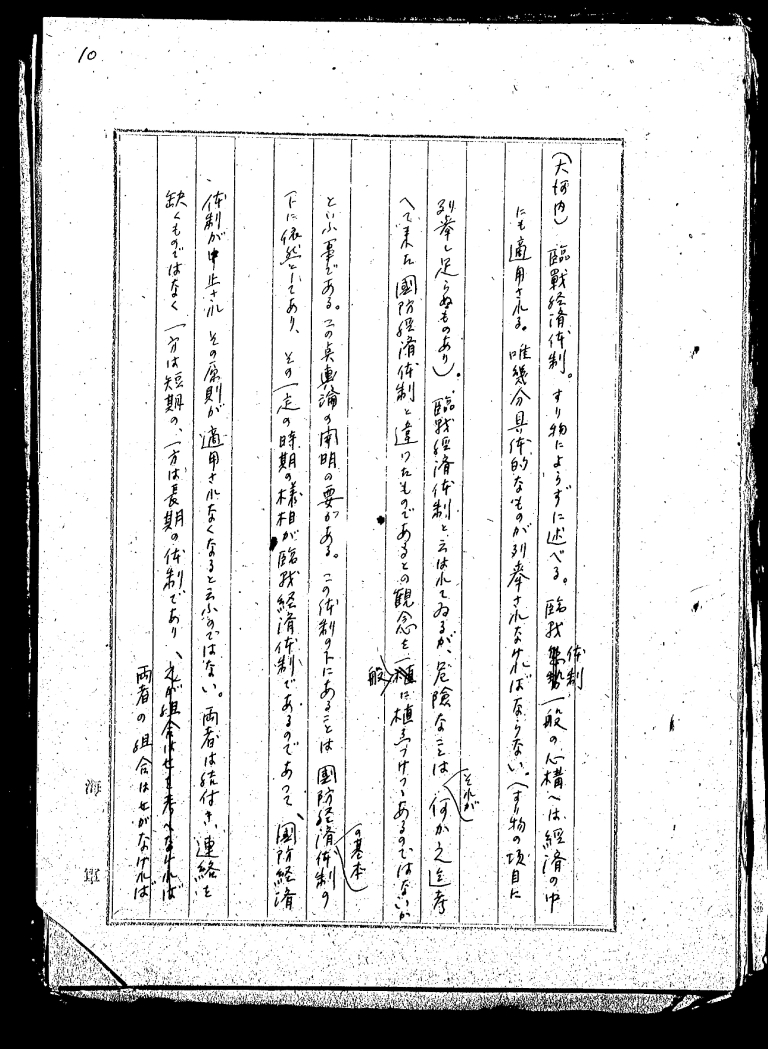 10
(大河内) 臨戦経済体制。すり物によらずに述べる。臨戦体制一般の心構へは経済の中
にも適用される。唯幾分具体的なものが列挙されなければならない。(すり物の項目に
列挙し足らぬものあり)。臨戦経済体制と云はれてゐるが、危険なことは それが何か之迄考
へて来た國防経済体制と違つたものであるとの観念を一般に植ゑつけつゝあるのではないか
といふ事である。この点輿論の開明の要がある。この体制の下にあることは國防経済体制の
の基本
下に依然としてあり、その一定の時期の様相が臨戦経済体制であるのであつて、國防経済
体制が中止され その原則が適用されなくなると云ふのではない。両者は結付き、連絡を
欠くものではなく 一方は短期の、一方は長期の体制であり、
両者の組合はせがなければ
海軍